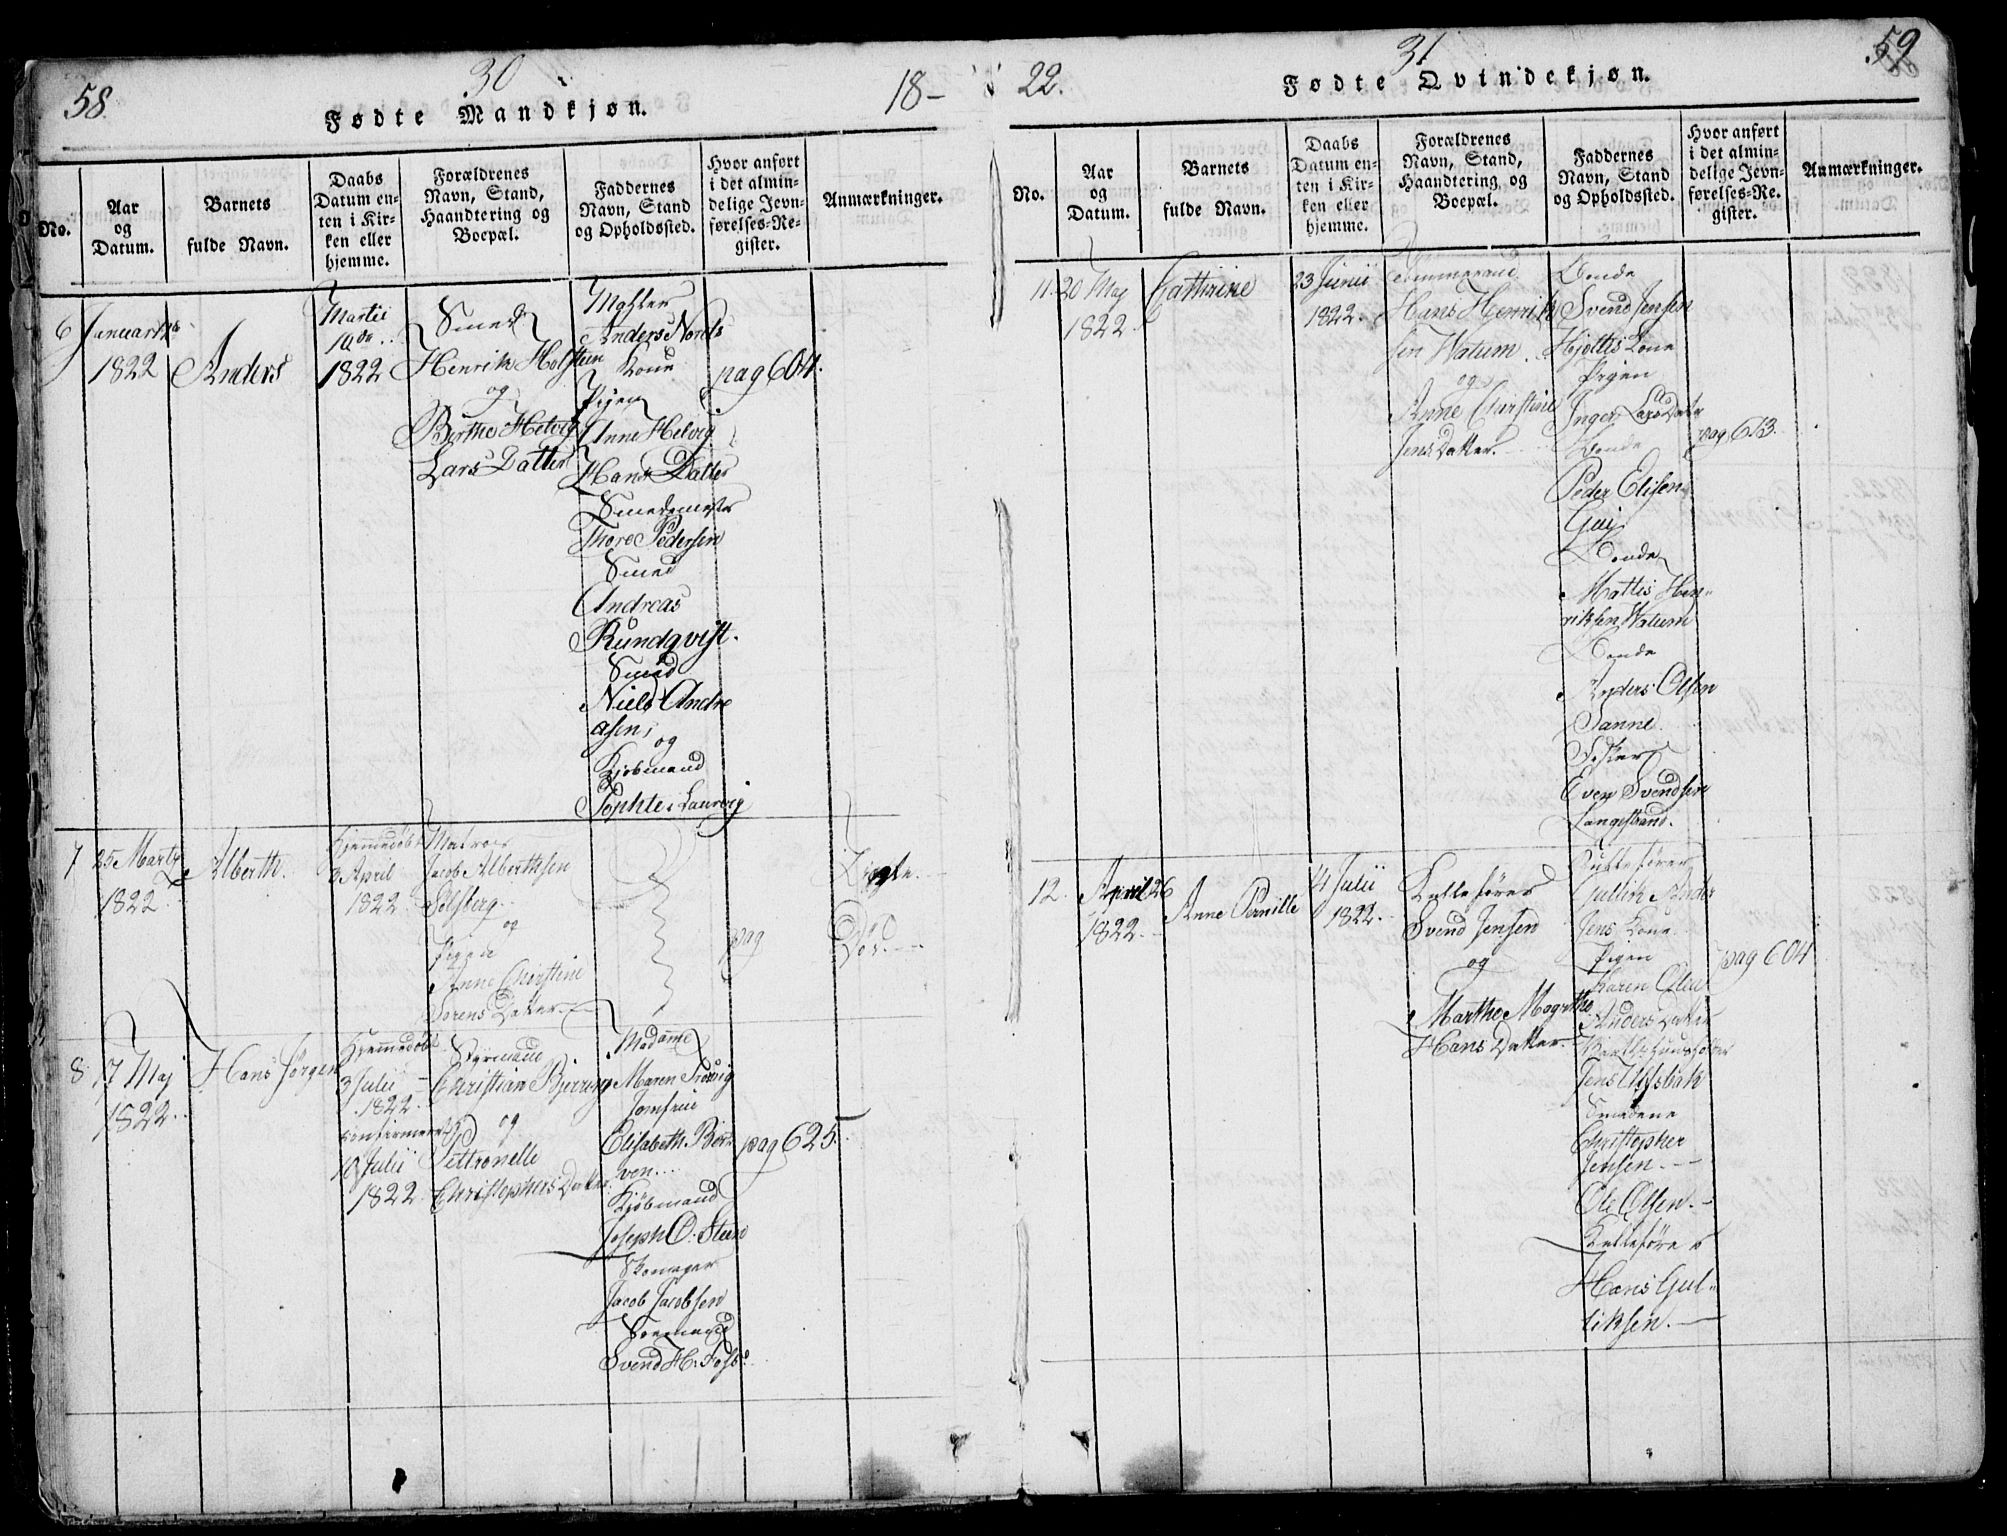 58.
30
18-
Fødte Mandkjøn.
No.
Aar
og
Datum.
Barnets
fulde Navn.
Daabs
Datum en-
ten i Kir-
ken eller
hjemme.
Forældrenes
Navn, Stand,
Haandtering og
Boepæl.
Faddernes
Navn, Stand
og Opholdssted.
Hvor anført
i det almin-
delige Jevn-
førelses-Re-
gister.
Anmærkninger.
6
Januarius
1822
Anders
Martii
1822
Smed
Henrik Holsteen
og
Berthe Helvig
Lars Datter
Anders Norels
Kone
Pigen
Anne Helvig
Hans Datter
Smedemester
Thore Pedersen
Smed
Andreas
Rundqvist.
Smed
Niels Andre
asen,
og
Kjøbmand
Sophie Laurvig
pag 604.
7
25 Marty
1822
Alberth.
Hjemmedøbt
3 April
1822
Matros
Jacob Alberthsen
Solberg
og
Pigen
Anne Christine
Sørens Datter
pag
Død
8
17 Maj
1822.
Hans Jørgen
Hjemmedøbt
3 Julii
1822.
confirmeret
10 Julii
1822.
Styrmand
Christian Bjerring
og
Pettronelle
Christophers Datter.
Madame
Maren Trovig
Jomfrue
Elisabeth Bær
ven.
Kjøbmand
Joseph O. Steen
Skomager
Jacob Jacobsen
Svend H. Fos
pag 625.
22.
31
59
Fødte Qvindekjøn.
No.
Aar
og
Datum.
Barnets
fulde Navn.
Daabs
Datum en-
ten i Kir-
ken eller
hjemme.
Forældrenes
Navn, Stand,
Haandtering, og
Boepæl.
Faddernes
Navn, Stand
og Opholdssted.
Hvor anført
i det almin-
delige Jevn-
førelses-Re-
gister.
Anmærkninger.
11.
20 Maj
1822
Cathrine
23 Junii
1822.
Hans Henrik
sen Watum.
og
Anne Christine
Jens Datter.
Bonde
Svend Jensen
Hjøllis Kone
Pigen
Inger Lars Datter
Bonde
Peder Elisen
Gui
Bonde
Mattis Hen-
riksen Watum
Bonde
Anders Olsen
Sanne.
Fisker
Even Svendsen
Langestrand.
pag 613.
12.
April 26
1822.
Anne Pernille
14 Julii
1822.
Kulleførere
Svend Jensen
og
Marthe Magrethe
Hans Datter.
Kulleførere
Gullik Anders
Jens Kone.
Pigen
Karen Olea
Anders Datter
Jens Ulfsbak
Smedene
Christopher
Jensen.
Ole Olsen.
Kulleførere
Hans Gul-
liksen.
pag 604